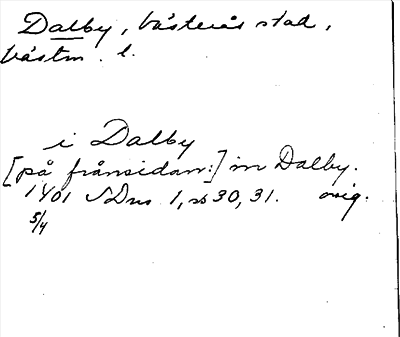 Dalby, Västerås stad,
Västm. l.
i Dalby
[på frånsidan:] in Dalby.
1401 SDns 1, s 30, 31. orig.
5/4